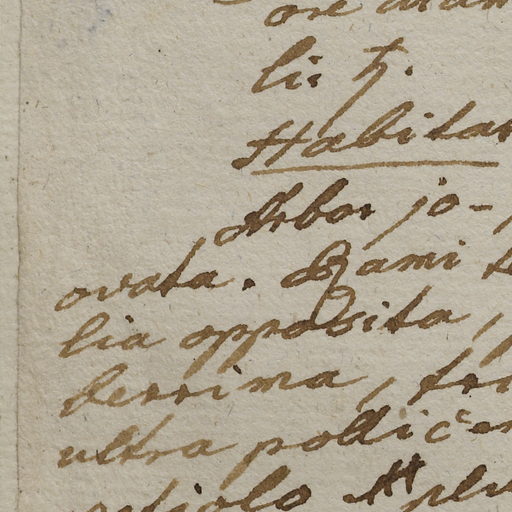 lii ♄.
Habitat
Arbor 30-
ovata. Rami
lia opposita,
berrima,
ultra pollicem
petiolo